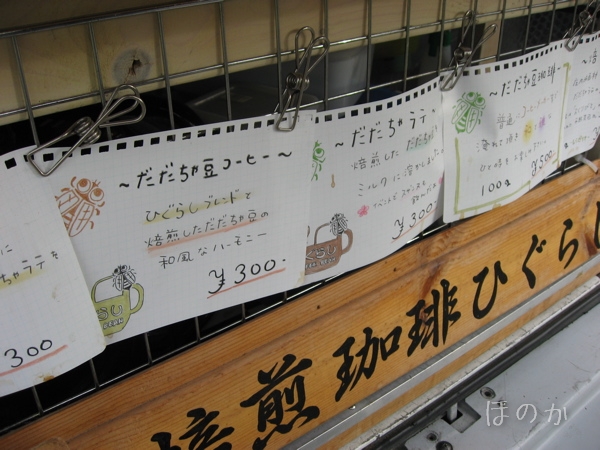 に
ちゃラテを
300
～だだちゃ豆コーヒー～
ひぐらしブレンドと
焙煎しただだちゃ豆の
和風なハーモニー
¥300-
～だだちゃラテ
焙煎しただだちゃ
ミルクに溶かしました
¥300
～だだちゃ豆珈琲～
100g
¥500
焙煎珈琲ひぐらし
ほのか